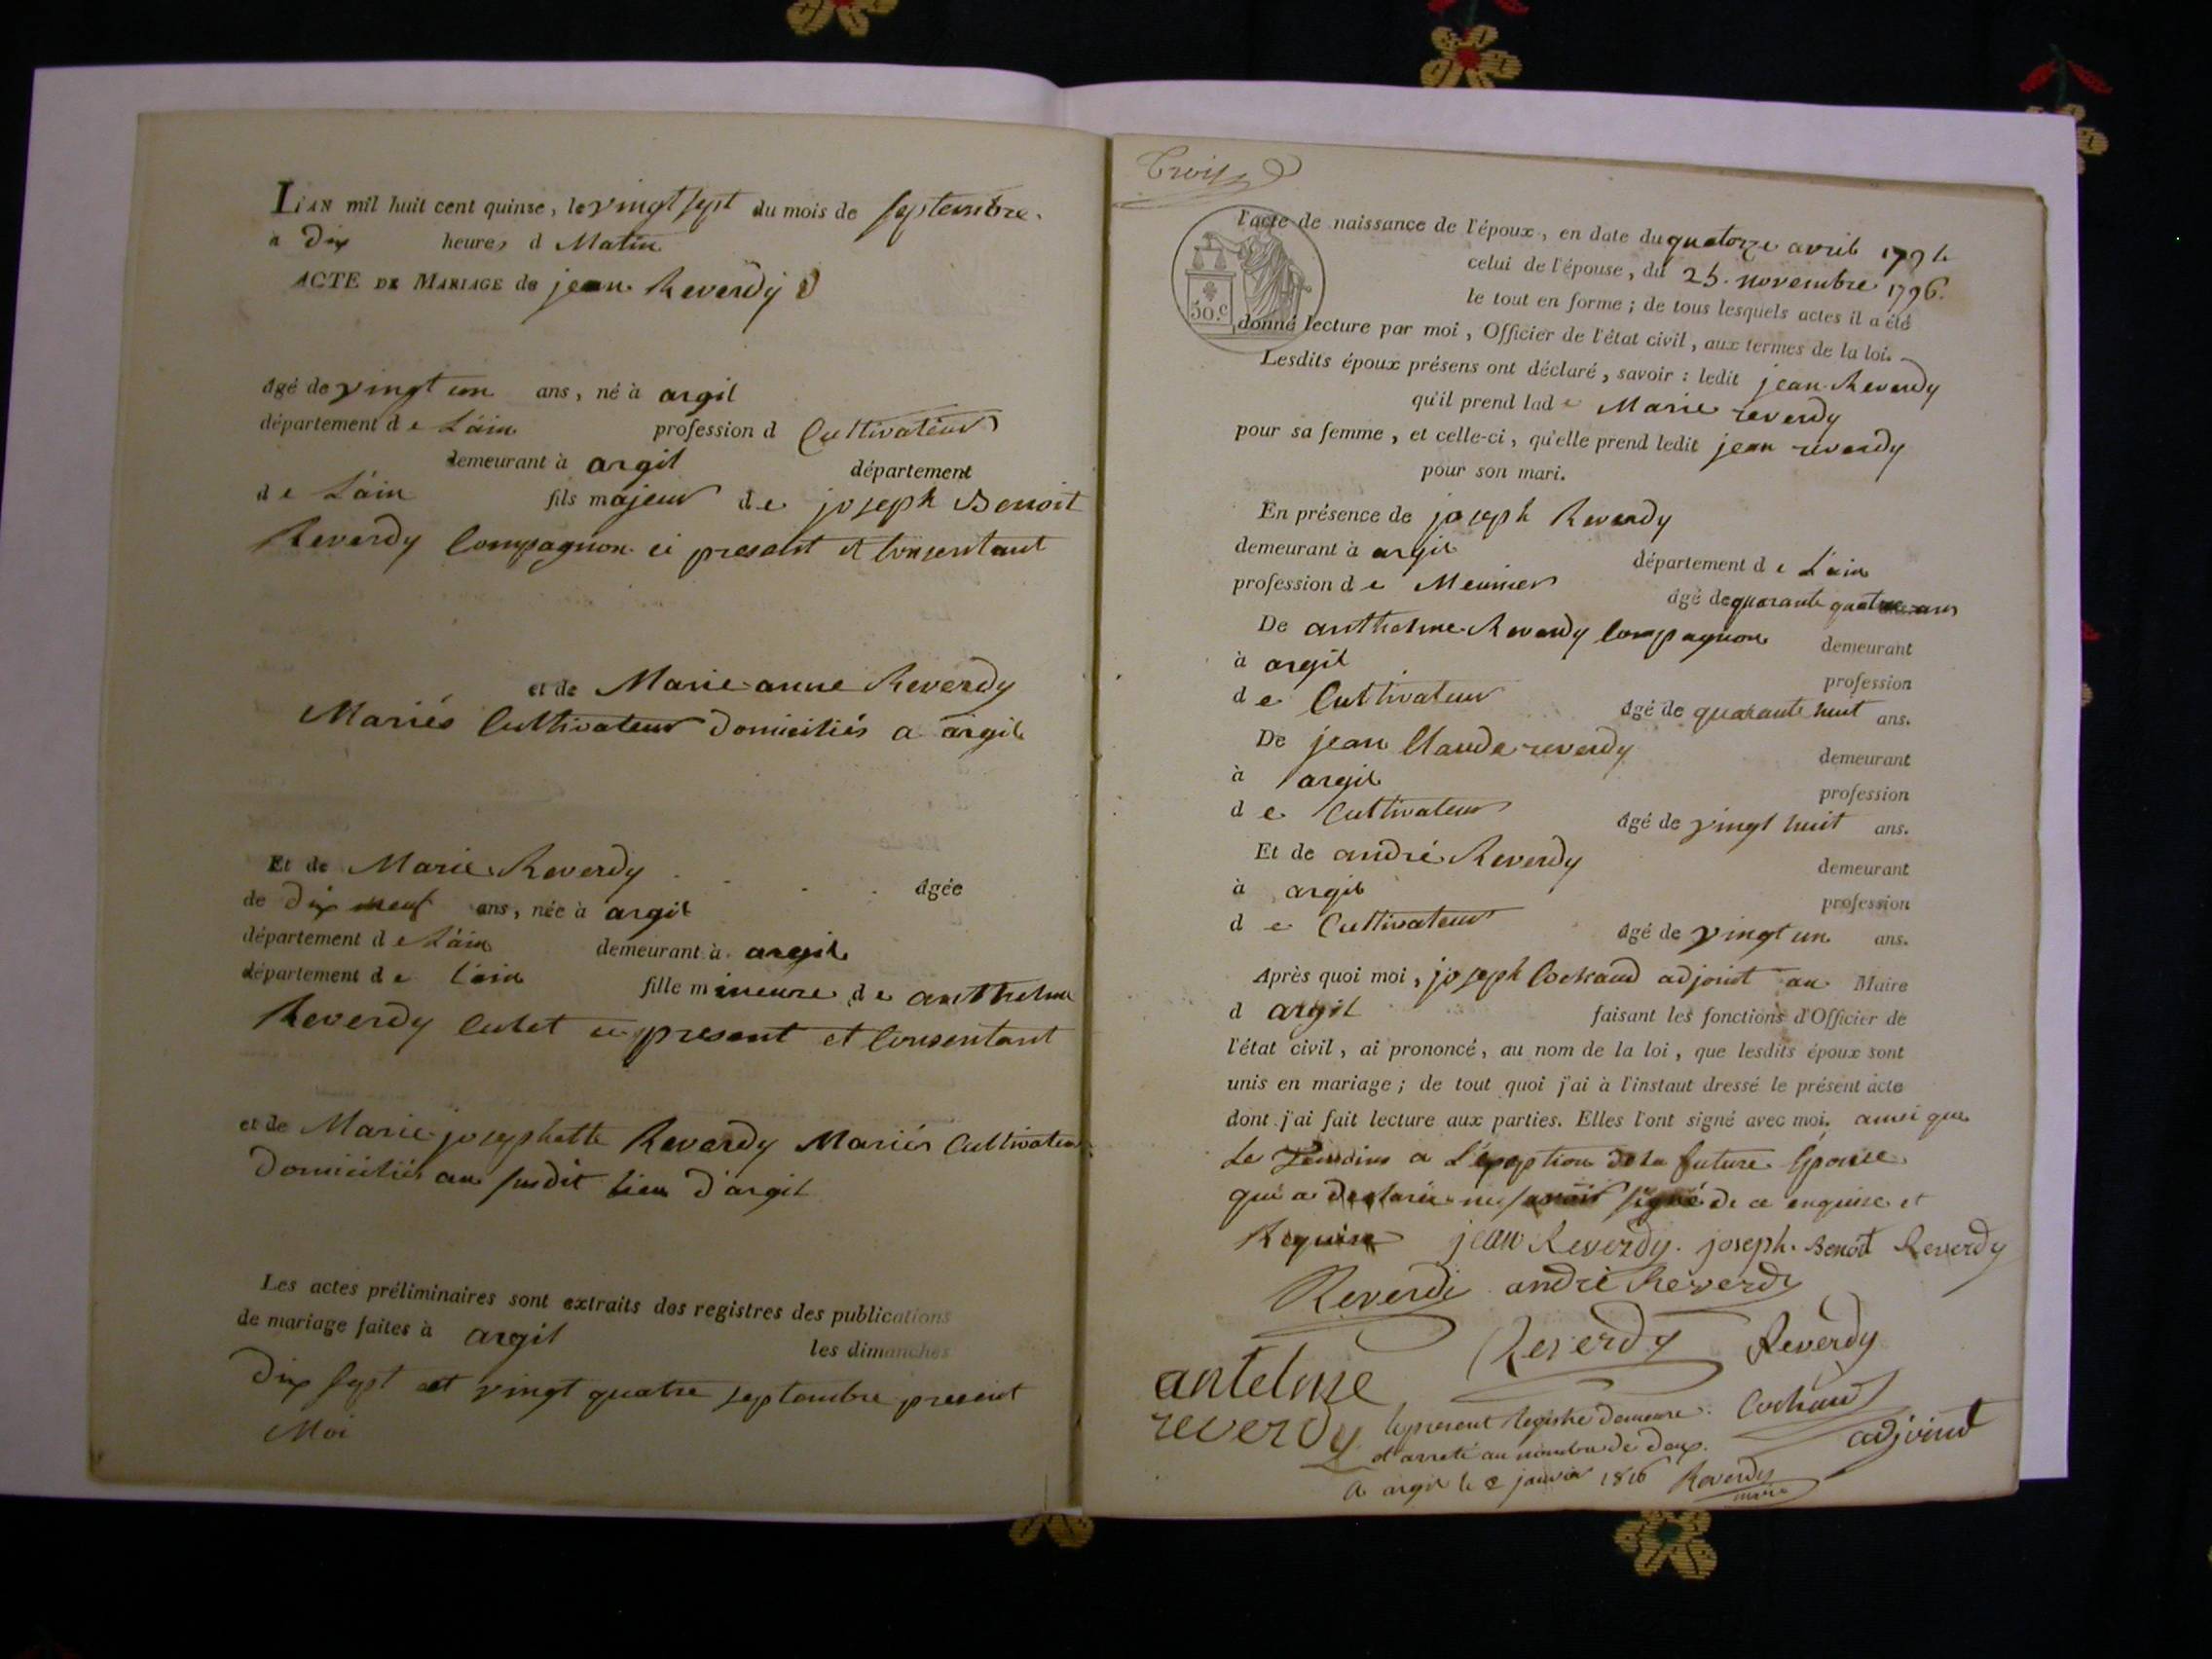 L'AN mil huit cent quinse, le vingt sept du mois de septembre.
a dix heures d Matin
ACTE DE MARIAGE de jean Reverdy
âgé de vingt un ans, né à argil
département d e L'ain profession d Cultivateur
demeurant à argil département
d e L'ain fils majeur de joseph Benoit
Reverdy Compagnon ci present et Consentant
et de Marie anne Reverdy
Mariés Cultivateur domiciliés a argil
Et de Marie Reverdy âgée
de dix neuf ans, née à argil
département d e L'ain demeurant à argil
département d e L'ain fille mineure de anthelme
Reverdy ci present et Consentant
et de Marie josephette Reverdy Mariés Cultivateur
domiciliés au susdit lieu d'argil
Les actes préliminaires sont extraits des registres des publications
de mariage faites à argil les dimanches
dix sept et vingt quatre septembre present
Moi
l'acte de naissance de l'époux, en date du quatorze avril 1794
celui de l'épouse, du 25. novembre 1796.
le tout en forme; de tous lesquels actes il a été
50.c
donné lecture par moi, Officier de l'état civil, aux termes de la loi.
Lesdits époux présens ont déclaré, savoir : ledit jean Reverdy
qu'il prend lad e Marie reverdy
pour sa femme, et celle-ci, qu'elle prend ledit jean reverdy
pour son mari.
En présence de joseph Reverdy
demeurant à argil département d e L'ain
profession d e Meunier âgé de quarante quatre ans
De anthelme Reverdy Compagnon demeurant
à argil profession
d e Cultivateur âgé de quarante huit ans.
De jean Claude reverdy demeurant
à argil profession
d e Cultivateur âgé de vingt huit ans.
Et de andré Reverdy demeurant
à argil profession
d e Cultivateur âgé de vingt un ans.
Après quoi moi, joseph Cochaud adjoint au Maire
d argil faisant les fonctions d'Officier de
l'état civil, ai prononcé, au nom de la loi, que lesdits époux sont
unis en mariage; de tout quoi j'ai à l'instaut dressé le présent acte
dont j'ai fait lecture aux parties. Elles l'ont signé avec moi. ainsi que
Le a L'exeption de la future Epouse
qui a declarée ne savoir signé de ce enquise et
Requise jean Reverdy. joseph. Benoit Reverdy
Reverdi andré Reverdy
Reverdy Reverdy
antelme
reverdy
Cochaud
adjoint
le present Registre demeure
arreté au nombre de deux.
A argil le 2 janvier 1816 Reverdy
maire